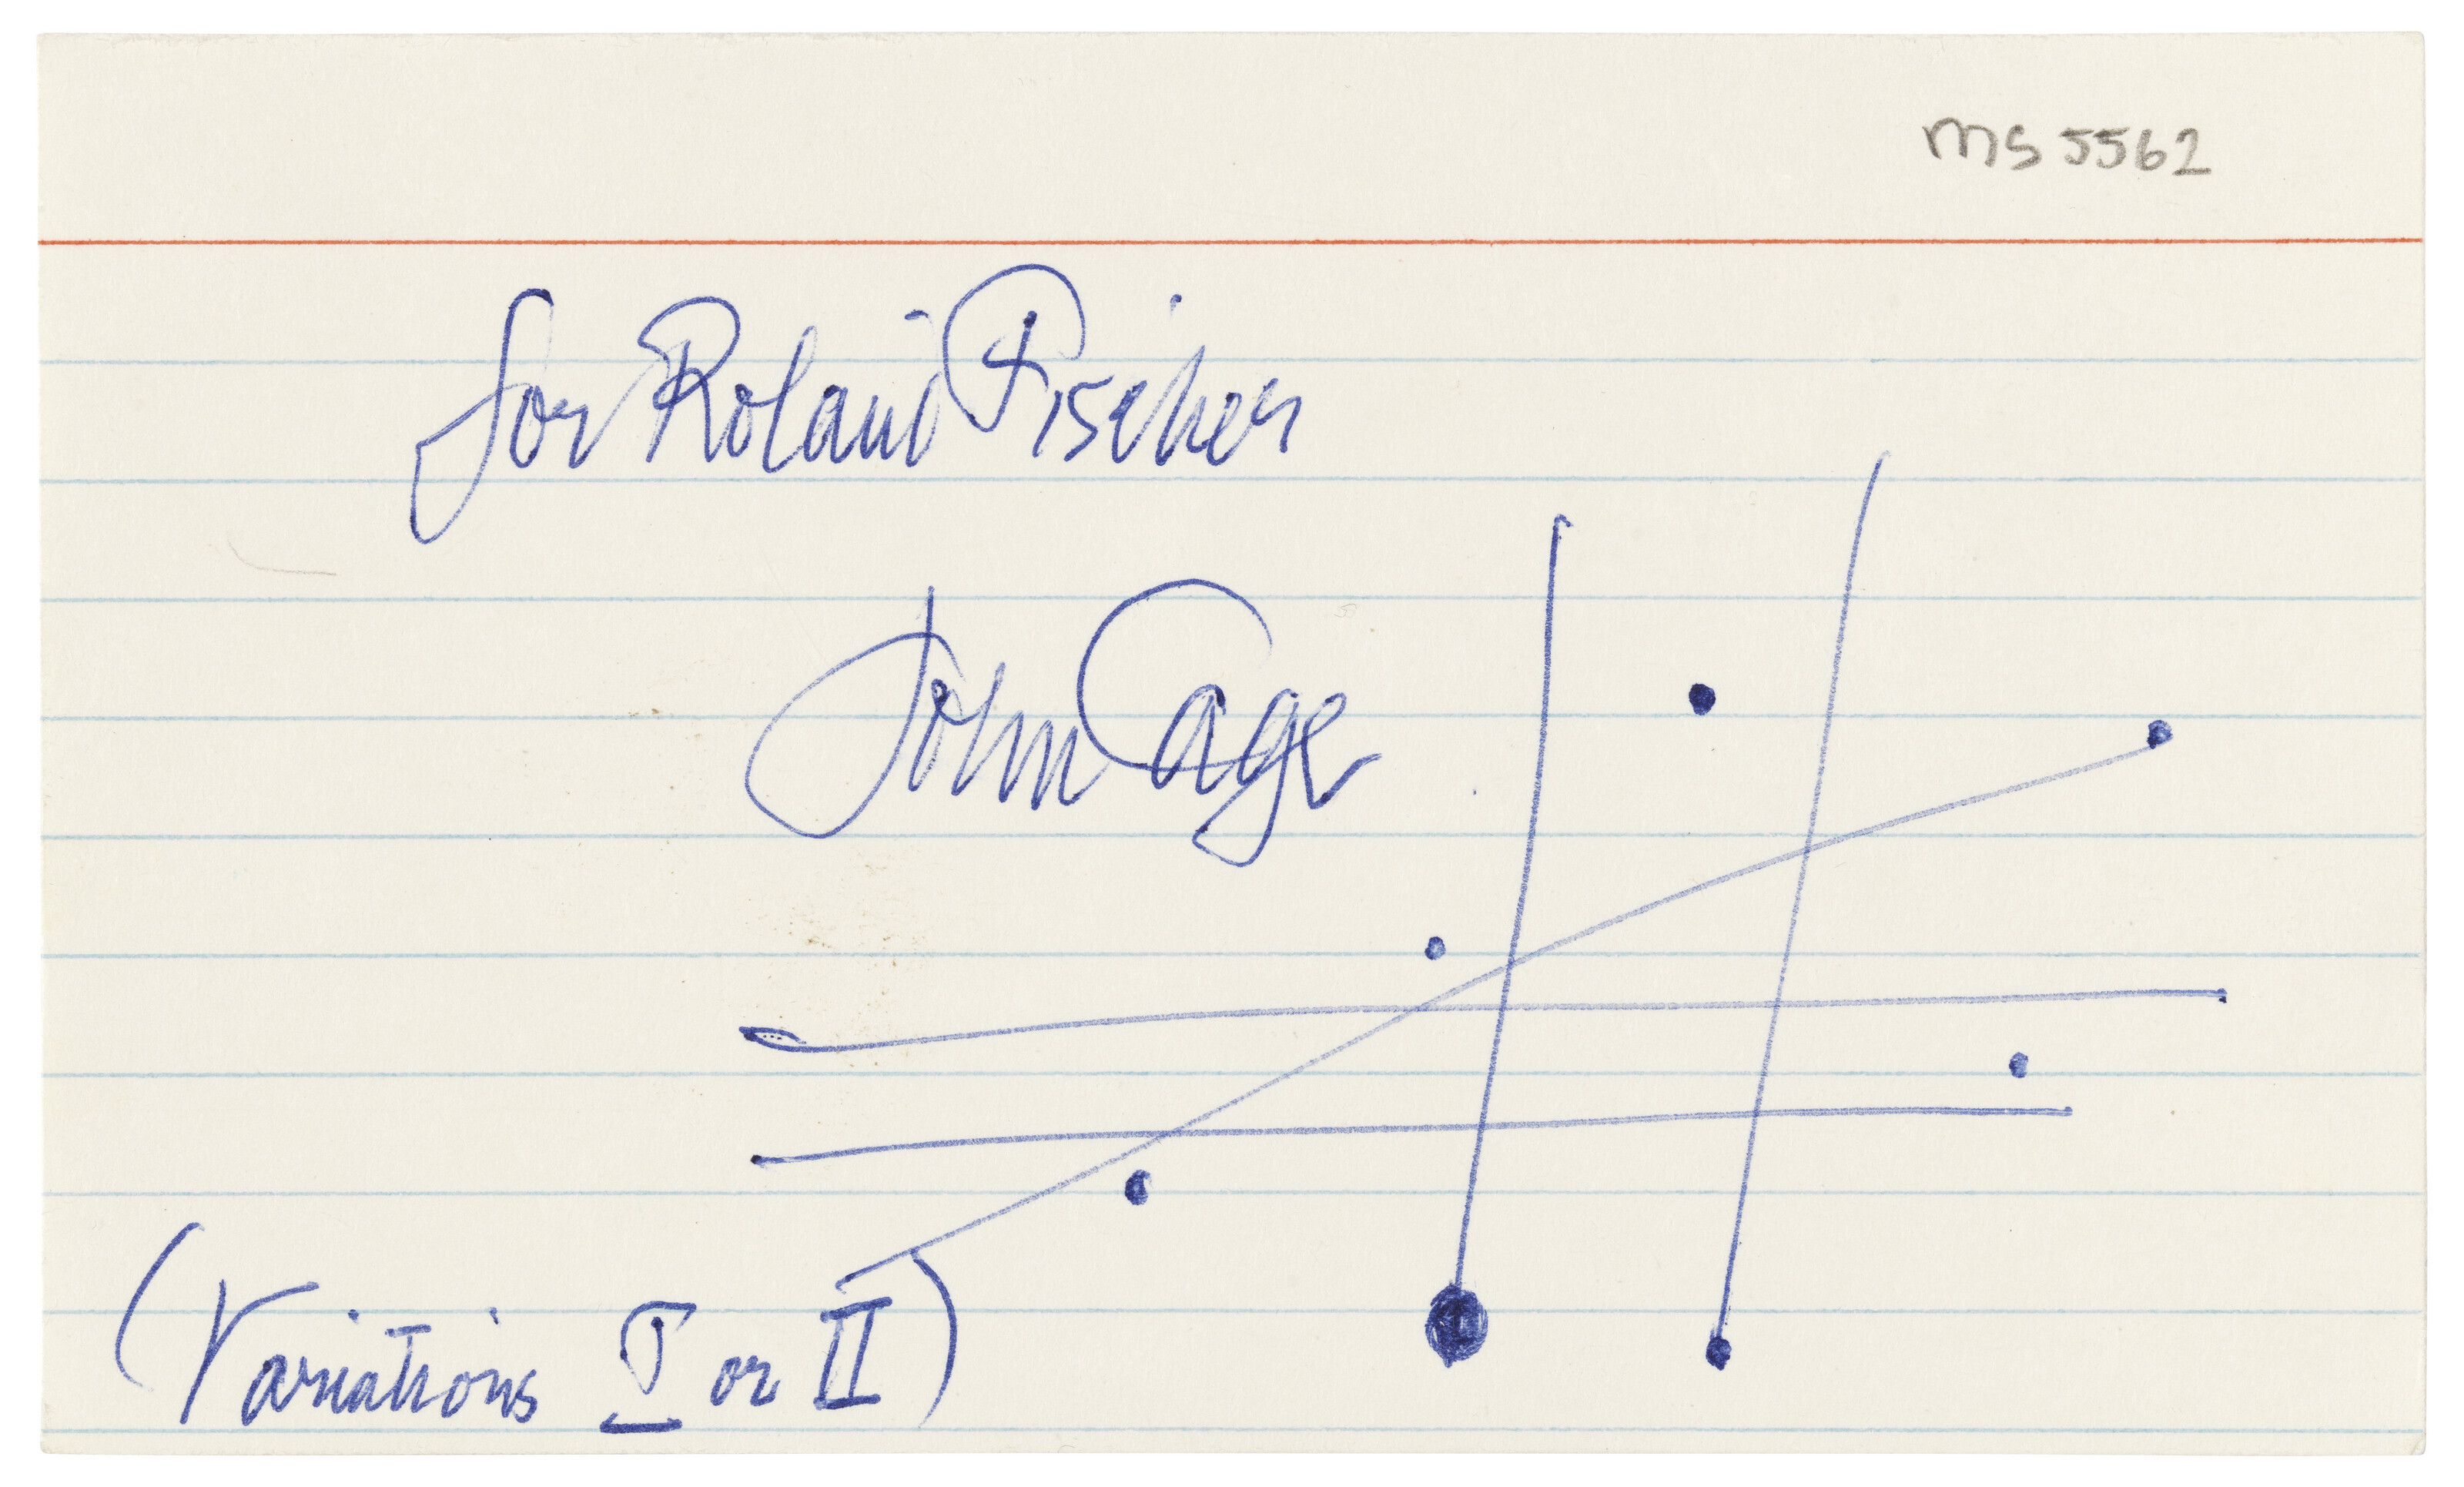 MS 5562
for Roland Fischer
John Cage
(Variations I or II)